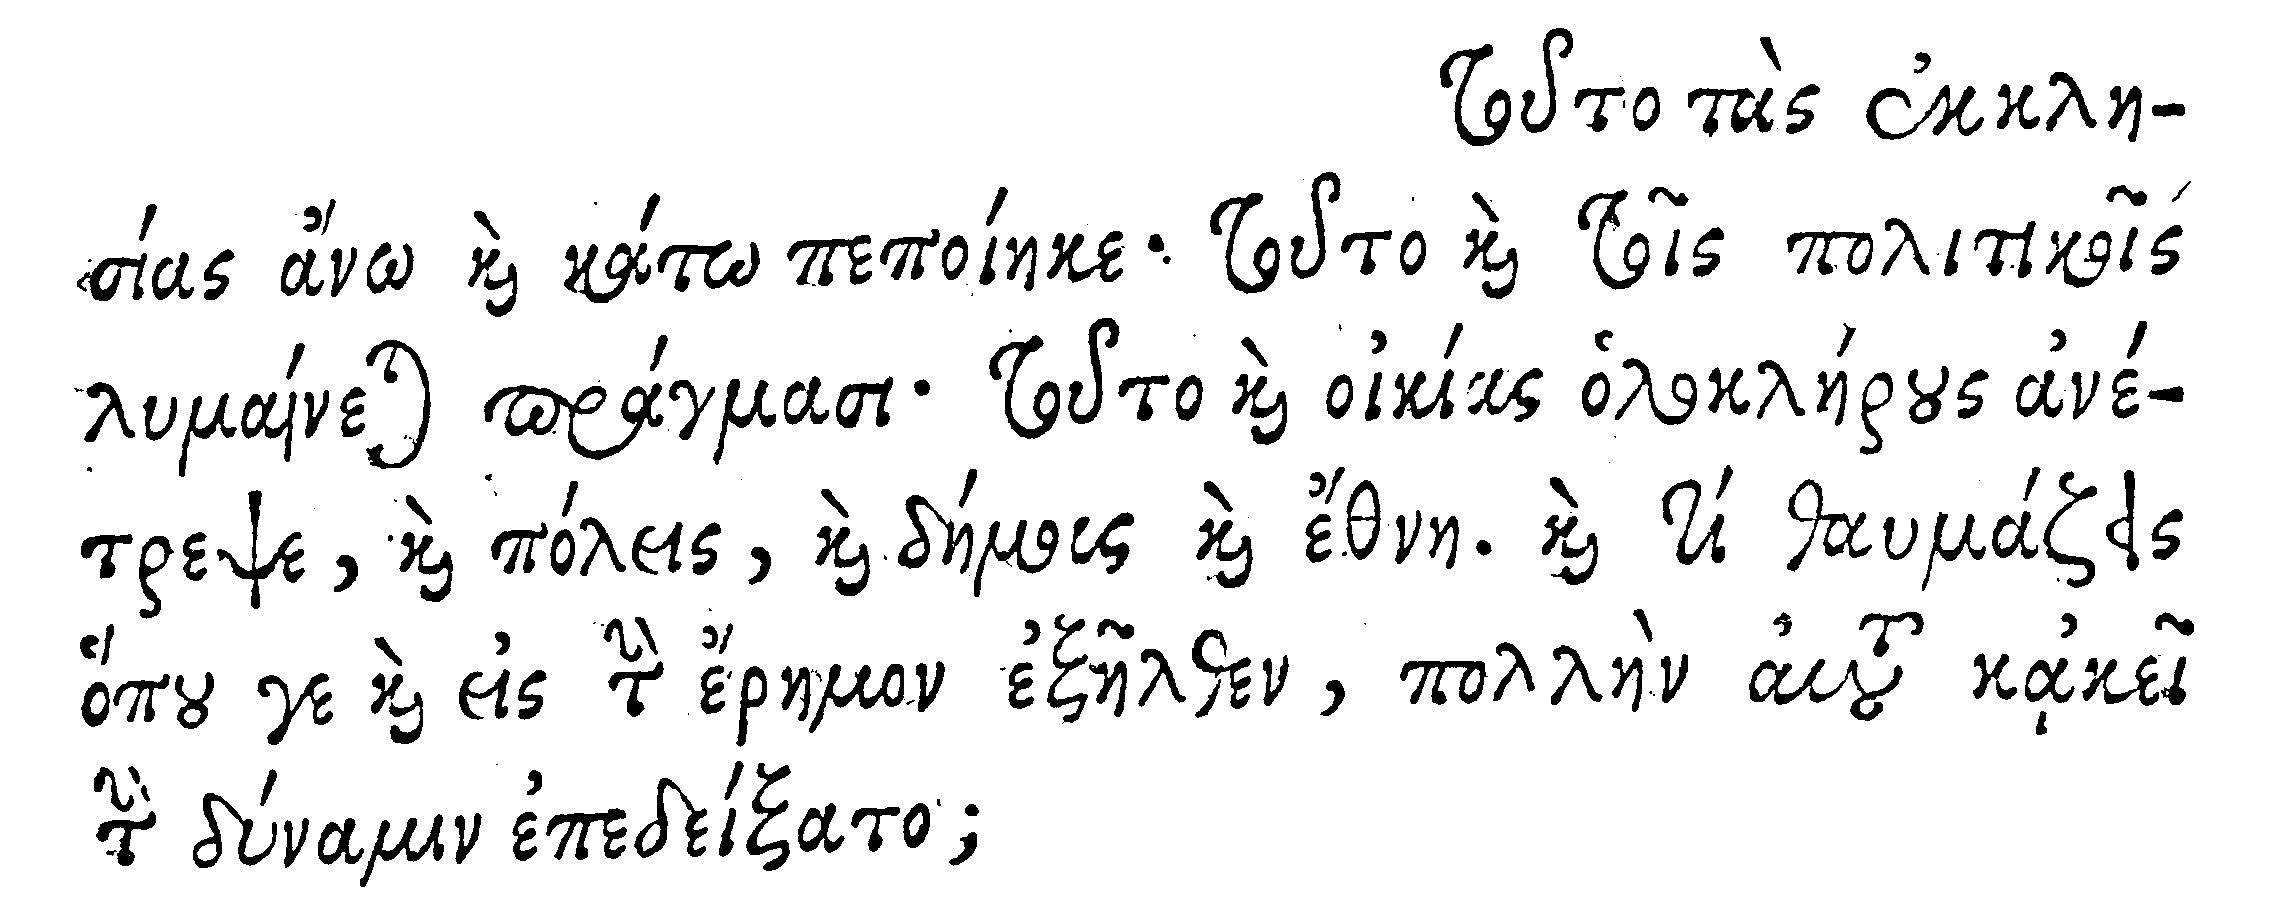 τοῦτο τὰς ἐκκλη-
σίας ἄνω καὶ κάτω πεποίηκε· τοῦτο καὶ τοῖς πολιτικοῖς
λυμαίνεται πράγμασι· τοῦτο καὶ οἰκίας ὁλοκλήρους ἀνέ-
τρεψε, καὶ πόλεις, καὶ δήμοις καὶ ἔθνη. καὶ τί θαυμάζεις
ὅπου γε καὶ εἰς τὴν ἔρημον ἐξῆλθεν, πολλὴν αὐτοῦ κᾀκεῖ
τὴν δύναμιν ἐπεδείξατο;